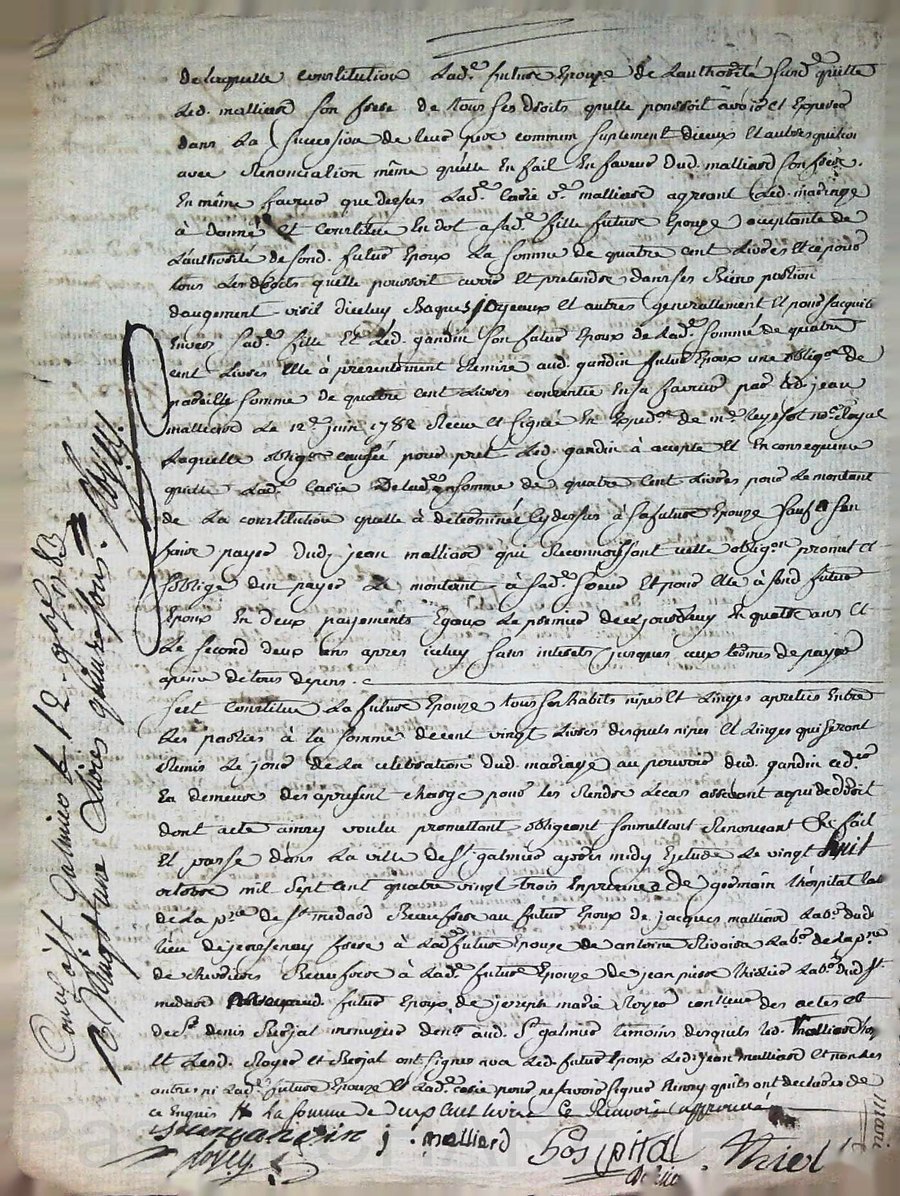 de laquelle constitution lad.e future Epouze de Lauthorité susd. quitte
Led. malliard son frere de tous ses droits quelle pourroit avoir et Exposer
dans La succession de leur pere commun suplement diceux et autres question
avec Renonciation même quelle En fait En faveur dud. malliard son frere.
En même faveur que dessus Lad.e Carie v.e malliard agreant Led. mariage
à donné Et Constitue En dot a sad.e fille future Epouze acceptante de
Lauthorité de sond. futur Epoux La somme de quatre cent Livres Et ce pour
tous Les droits quelle pourroit avoir Et pretendre dans ses Biens portion
daugement visil diceluy Bagues joyeaux Et autres generallement Et pour sacquit
Envers sad.e fille Et Led. gandin son futur Epoux de Lad.e somme de quatre
cent Livres Elle à presentement Remire aud. gandin futur Epoux une oblig.on de
pareille somme de quatre cent Livres consentie En sa faveur par led. jean
malliard Le 12.e juin 1782 Recue et signée En Expéd.on de m.e no.re Royal
Laquelle oblig.on causée pour pret Led. gandin à accepté Et En consequence
quitte Lad.e Carie De lad. somme de quatre Cent Livres pour Le montant
de La constitution quelle à determinée Cydessus à sa future Epouze sauf a sen
faire payer dud. jean malliard qui Reconnoissant cette oblig.on promet et
soblige den payer Le montant à sad.e soeur Et pour Elle à sond. futur
Epoux En deux payements Egaux Le premier de cejourdhuy En quatre ans Et
Le second deux ans apres iceluy sans interets jusques aux termes de payer
apeine de tous depens.
sest Constitué La future Epouze tous ses habits nipes Et Linges apretiés Entre
Les parties à la somme de cent vingt Livres desquels nipes Et Linges qui seront
Remis Le jour de la celebration dud. mariage au pouvoir dud. gandin
En demeure des apresent chargé pour les Rendre Le cas arrivant a qui de droit
dont acte ainsy voulu promettant obligeant soumettant Renoncant &c fait
Et passé dans La ville de St. galmier apres midy Etude Le vingt huit
octobre mil sept cent quatre vingt trois En presence de germain Lhospital Lab.r
de La p.sse de St. medard Beaufrere au futur Epoux de jacques malliard Lab.r dud.
Lieu de frere à Lad. future Epouze de antoine Rivoire Lab.r de La p.sse
de chevrieres Beaufrere à Lad.e future Epouze de jean pierre Thiolier Lab.r dud. St.
medard futur Epoux de joseph marie Royer controlleur des actes et
de S.r denis Berjat menuzier dem.t aud. St. galmier temoins desquels led. malliard
Et Lesd. Royer et Berjat ont signé avec Led. futur Epoux Led. jean malliard et non les
autres ni Lad.e future Epouze Et Lad.e Carie pour ne savoir signer Ainsy quils ont declaré de
ce Enquis La somme de deux Cent livres approuvé
jean gandin j. malliard Lospital Thiol
Royer
Controllé à St Galmier le 12 9bre 1783
R. vingt une Livres quinze sous. Royer